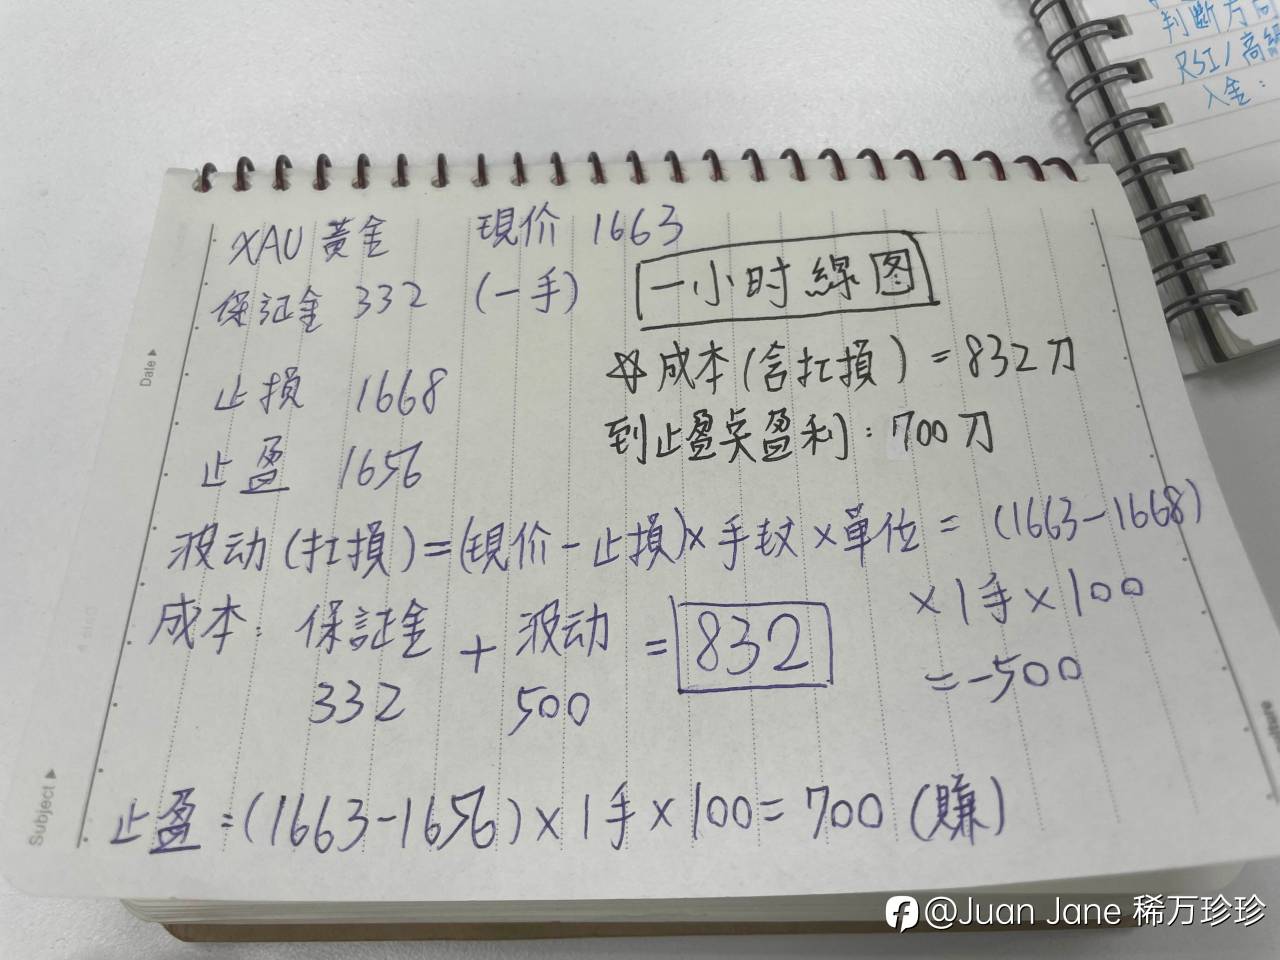 XAU 黃金 現价 1663
保証金 332 (一手)
一小时線图
止損 1668
止盈 1656
☆成本(含扛損) = 832刀
到止盈奌盈利: 700刀
波动(扛損)=(現价-止損)×手数×單位= (1663-1668)
×1手×100
=-500
成本: 保証金 + 波动 = 832
332 500
止盈=(1663-1656)×1手×100=700 (賺)
判斷方向
RSI/高
入金:
Date
Subject
@Juan Jane 稀万珍珍